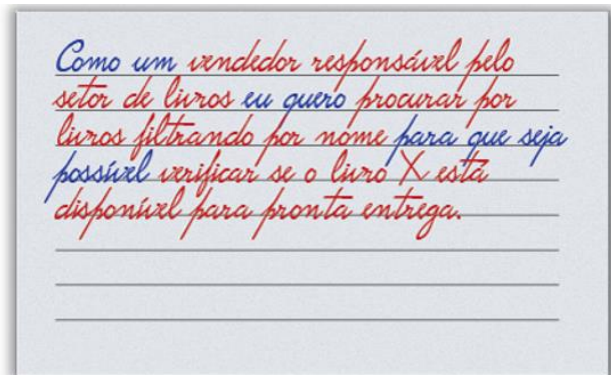 Como um vendedor responsável pelo
setor de livros eu quero procurar por
livros filtrando por nome para que seja
possível verificar se o livro X está
disponível para pronta entrega.